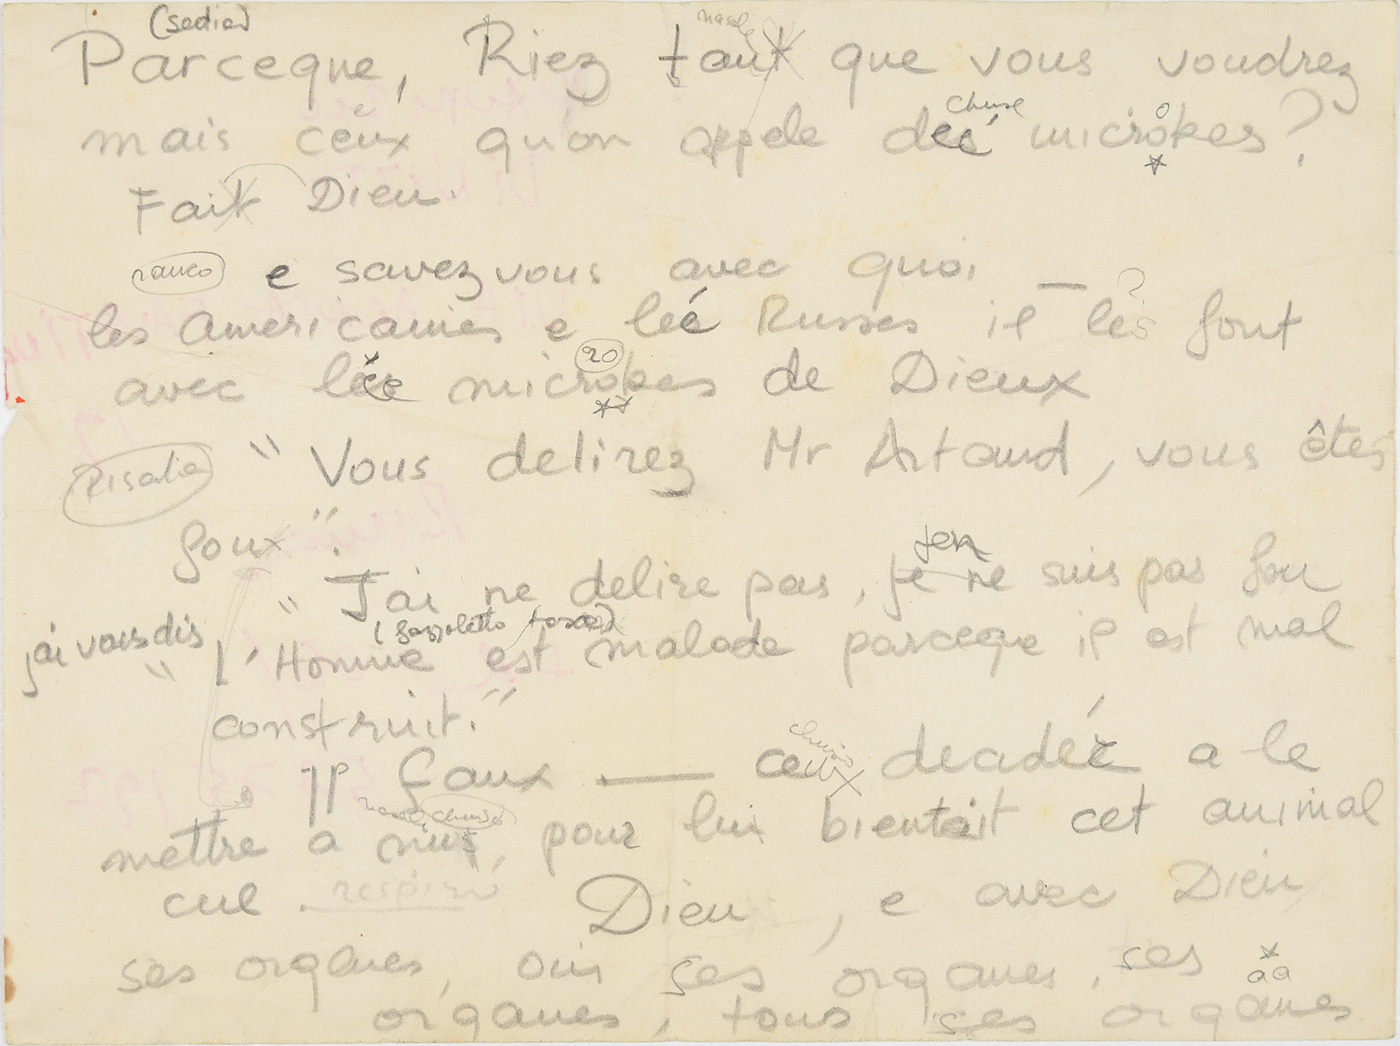 (sedia)
Parceque, Riez tant que vous voudrez
nasale
chuse
mais ceux qu'on appele des microbes ?
Fait Dieu.
rauco e savez vous avec quoi —
les americaines e les Russes il les font
20
avec les microbes de Dieux
Risalia " Vous delirez Mr Artaud, vous êtes
foux ".
jen
" J'ai ne delire pas, je ne suis pas fou
j'ai vous dis
(fazzoletto tosse)
" L'Homme est malade parceque il est mal
construit."
Il faux — ce decadé a le
nasale chuso
mettre a nus, pour lui bientait cet animal
cul respiro Dieu, e avec Dieu
ses organes, oui ses organes, ses
aa
organes, tous ses organes